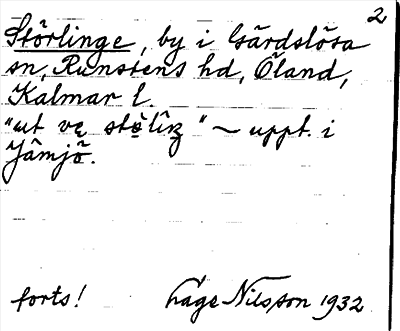 2
Störlinge, by i Gärdslösa
sn, Runstens hd, Öland,
Kalmar l.
"ut vę stö̀liꞑ" ~ uppt. i
Jämjö.
forts! Låge Nilsson 1932